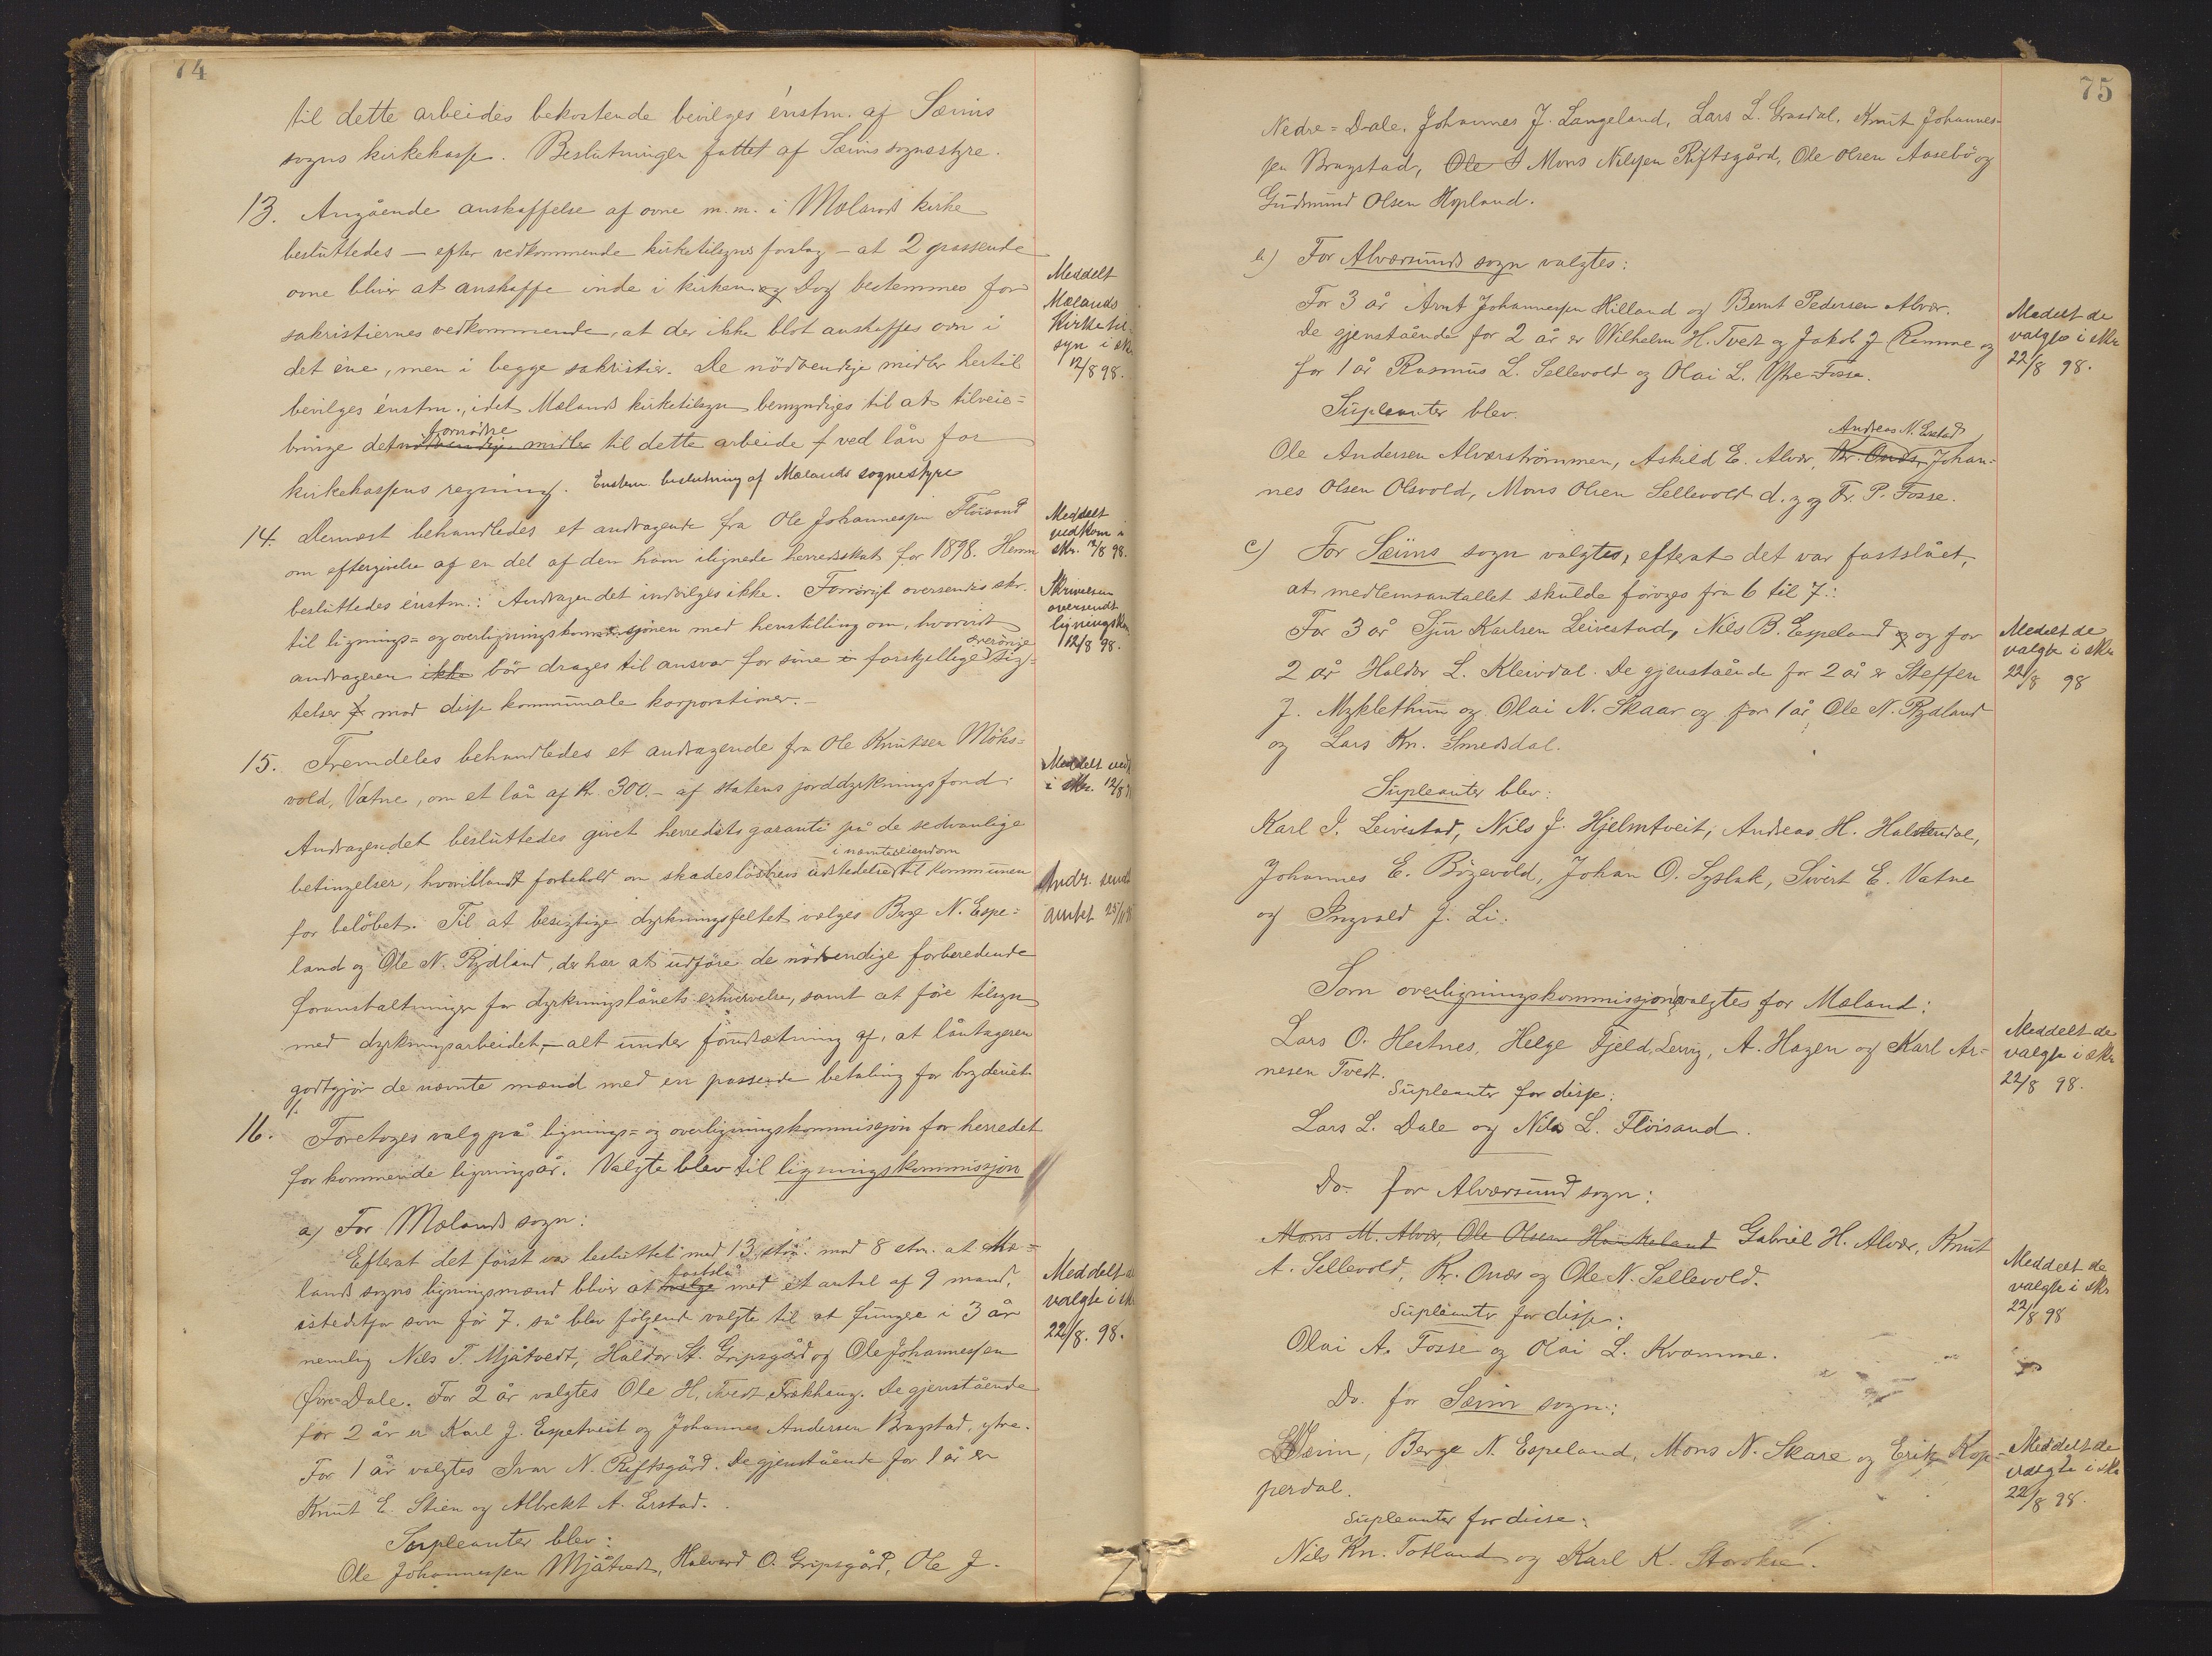 74
til dette arbeides bekostende bevilges énstm. af Sæims
sogns kirkekasse. Beslutningen fattet af Sæims sognestyre.
13. Angående anskaffelse af ovne m.m. i Mælands kirke
besluttedes — efter vedkommende kirketilsyns forslag — at 2 passende
ovne bliver at anskaffe inde i kirken og Dog bestemmes for
sakristiernes vedkommende, at der ikke blot anskaffes ovn i
det éne, men i begge sakristier. De nödvendige midler hertil
bevilges énstm., idet Mælands kirketilsyn bemyndiges til at tilveie-
fornødne
bringe det nødvendige midler til dette arbeide f ved lån for
kirkekassens regning. Enstem. beslutning af Mælands sognestyre
Meddelt
Mælands
Kirketil-
syn i skr.
12/8 98.
14. Dernæst behandledes et andragende fra Ole Johannessen Flöisand
om eftergivelse af en del af den ham ilignede herredsskat for 1898. Herom
besluttedes énstm.: Andragendet indvilges ikke. Forövrigt oversendes skr.
til lignings- og overligningskommissjónen med henstilling om, hvorvidt
overörige
andrageren ikke bör drages til ansvar for sine i forskjellige sig-
telser f mod disse kommunale korporationer. —
Meddelt
vedkom i
skr. 12/8 98.
Skrivelsen
oversendt
ligningsk
12/8 98.
15. Fremdeles behandledes et andragende fra Ole Knutsen Möks-
vold, Vatne, om et lån af Kr. 300.- af statens jorddyrkningsfond.
Andragendet besluttedes givet herredets garanti på de sedvanlige
i nævnte eiendom
betingelser, hvoriblandt forbehold om skadeslösbrevs udstedelse til kommunen
for belöbet. Til at besigtige dyrkningsfeltet valges Berge N. Espe-
land og Ole N. Rydland, der har at udföre de nödvendige forberedende
foranstaltninger for dyrkningslånets erhvervelse, samt at före tilsyn
med dyrkningsarbeidet, — alt under forudsætning af, at låntageren
godtgjör de nævnte mænd med en passende betaling for bryderiet.
Meddelt vedk
i skr. 12/8
Andr. sendt
amtet 25/11
16. Foretoges valg på lignings- og overligningskommissjon for herredet
for kommende ligningsår. Valgte blev til ligningskommissjon
a) For Mælands sogn:
Efterat det först var besluttet med 13 stm. mod 8 stm. at Mæ-
fastslå
lands sogns ligningsmænd bliver at vælge med et antal af 9 mand,
istedetfor som för 7. så blev fölgende valgte til at fungere i 3 år
nemlig Nils T. Mjåtvedt, Haldor St. Gripsgård og Ole Johannessen
Övre-Dale. For 2 år valgtes Ole H. Tvedt Frækhaug. De gjenstående
for 2 år er Karl J. Espetveit og Johannes Andersen Bragstad, ytre.
For 1 år valgtes Ivar N. Riftsgård. De gjenstående for 1 år er
Knut E. Stien og Albrekt A. Erstad.
Supleanter blev:
Ole Johannessen Mjåtvedt, Halvard O. Gripsgård, Ole J.
Meddelt de
valgte i skr
22/8. 98.
75
Nedre-Dale, Johannes J. Langeland, Lars L. Grasdal, Knut Johannes-
sen Bragstad, Ole J Mons Nilssen Riftsgård, Ole Olsen Aasebö og
Gudmund Olsen Hopland.
b) For Alværsunds sogn valgtes:
For 3 år Arnt Johannessen Hilland og Bernt Pedersen Alvær.
De gjenstående for 2 år er Wilhelm H. Tvedt og Jakob J Remme og
for 1 år Rasmus L. Sellevold og Olai L. Ystre-Fosse.
Supleanter blev.
Andreas N. Erstad
Ole Andersen Alværströmmen, Askild E. Alvær, Kr. Onæs, Johan-
nes Olsen Olsvold, Mons Olsen Sellevold d. y og Fr. P. Fosse.
Medelt de
valgte i skr
22/8 98.
c) For Sæims sogn valgtes, efterat det var fastslået,
at medlemsantallet skulde foröges fra 6 til 7:
For 3 år Sjur Karlsen Leivestad, Nils B. Espeland og og for
2 år Haldor L. Kleivdal. De gjenstående for 2 år er Steffen
J. Myklethun og Olai N. Skaar og for 1 år Ole N. Rydland
og Lars Kn. Smedsdal.
Supleanter blev:
Karl I. Leivestad, Nils J. Hjelmtveit, Andreas H. Halstendal,
Johannes E. Bögevold, Johan O. Syslak, Sivert E. Vatne
og Ingvald J. Li.
Medelt de
valgte i skr
22/8 98
Som overligningskommissjon valgtes for Mæland:
Lars O. Hestnes, Helge Fjeld, Leirvig, A. Hagen og Karl Ar-
nesen Tvedt.
Supleanter for disse:
Lars L. Dale og Nils L. Flöisand.
Meddelt de
valgte i skr
22/8 98.
Do. for Alværsund sogn:
Mons M. Alvær, Ole Olsen Haukeland Gabriel H. Alvær, Knut
A. Sellevold, Kr. Onæs og Ole N. Sellevold.
Supleanter for disse:
Olai A. Fosse og Olai L. Kvamme.
Meddelt de
valgte i skr
22/8 98
Do. for Sæim sogn:
Sæim, Berge N. Espeland, Mons N. Skare og Erik Kop-
perdal.
Supleanter for disse:
Nils Kn. Totland og Karl K. Storoksa.
Meddelt de
valgte i skr
22/8 98.